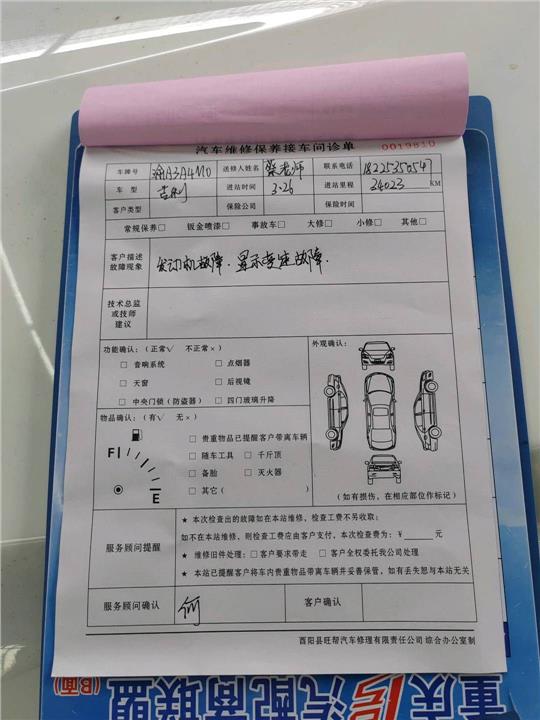 汽车维修保养接车问诊单 0019810
车牌号 渝A3A4M0 送修人姓名 蔡老师 联系电话 18225350547
车型 吉利 进站时间 3.26 进站里程 34023 KM
客户类型 保险公司 保险单
常规保养□ 钣金喷漆□ 事故车□ 大修□ 小修□ 其他□
客户描述
故障现象
发动机故障.显示变速故障.
技术总监
或技师
建议
功能确认：（正常√ 不正常×） 外观确认：
□ 音响系统 □ 点烟器
□ 天窗 □ 后视镜
□ 中央门锁（防盗器） □ 四门玻璃升降
物品确认：（有√ 无×）
□ 贵重物品已提醒客户带离车辆
F □ 随车工具 □ 千斤顶
□ 备胎 □ 灭火器
E □ 其它（ ）
（如有损伤，在相应部位作标记）
服务顾问提醒
★ 本次检查出的故障如在本站维修，检查工费不另收取；
如不在本站维修，则检查工费应由客户支付，本次检查费为：¥______元
★ 维修旧件处理：□客户要求带走 □客户全权委托我公司处理
★ 本站已提醒客户将车内贵重物品带离车辆并妥善保管，如有丢失恕与本站无关
服务顾问确认 何 客户确认
酉阳县旺帮汽车修理有限责任公司 综合办公室制
重庆1S汽配商联盟
(B面)